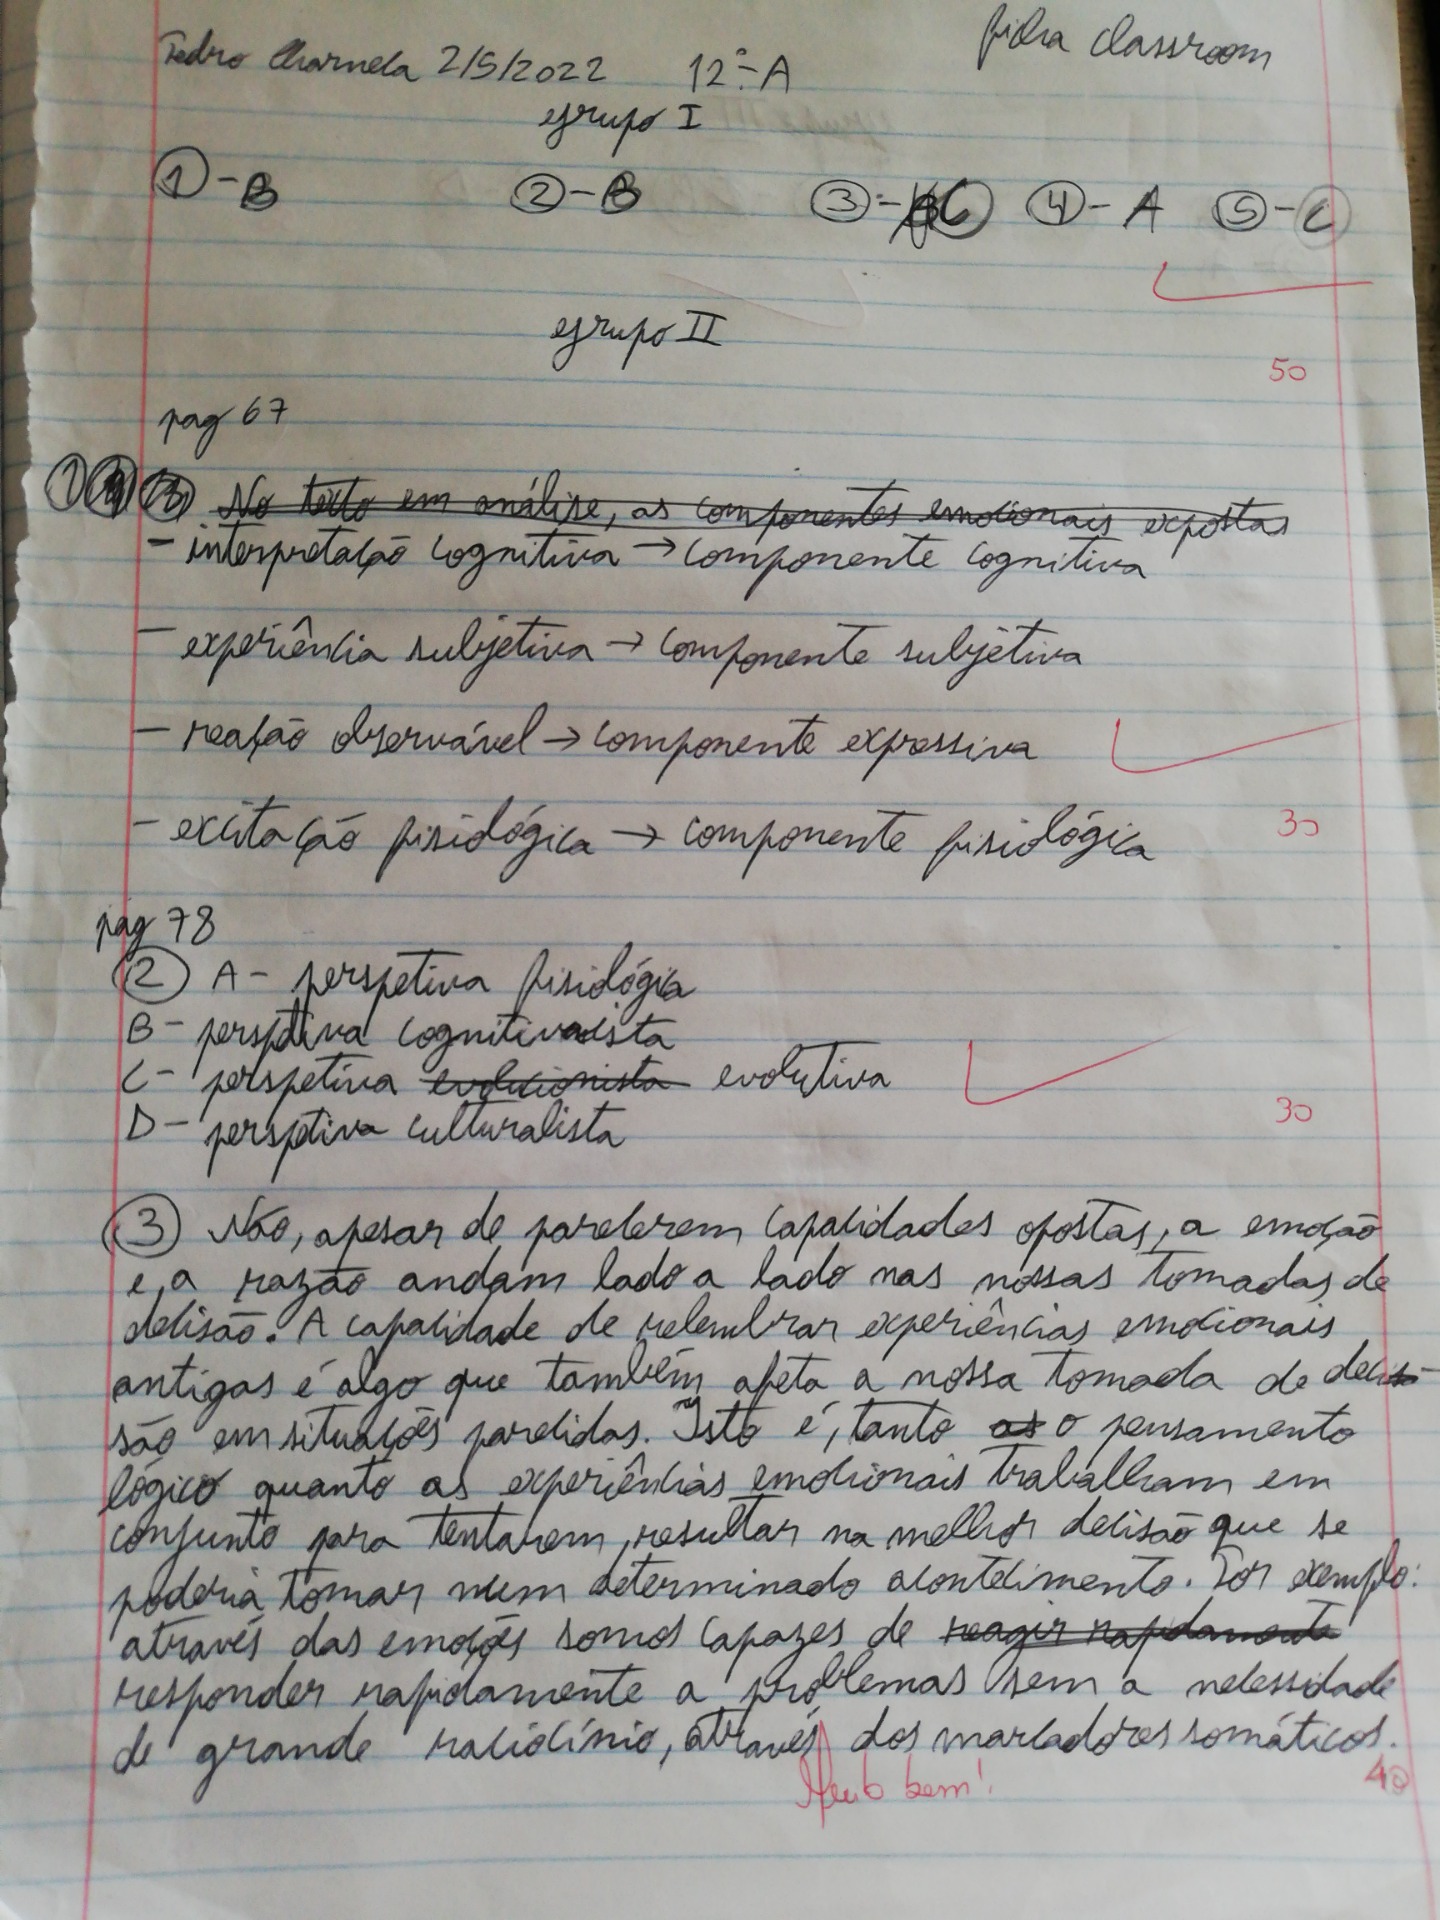 Pedro Charneta 2/5/2022 12º-A ficha classroom
grupo I
1-B 2-B 3-C 4-A 5-C
grupo II
50
pag 67
1 No texto em análise, as componentes emocionais expostas
- interpretação cognitiva → componente cognitiva
- experiência subjetiva → componente subjetiva
- reação observável → componente expressiva
- excitação fisiológica → componente fisiológica
30
pág 78
2 A- perspetiva fisiológica
B- perspetiva cognitivista
C- perspetiva evolucionista evolutiva
D- perspetiva culturalista
30
3 Não, apesar de parecerem capacidades opostas, a emoção
e a razão andam lado a lado nas nossas tomadas de
decisão. A capacidade de relembrar experiências emocionais
antigas é algo que também afeta a nossa tomada de deci-
são em situações parecidas. Isto é, tanto as o pensamento
lógico quanto as experiências emocionais trabalham em
conjunto para tentarem resultar na melhor decisão que se
poderia tomar num determinado acontecimento. Por exemplo:
através das emoções somos capazes de reagir rapidamente
responder rapidamente a problemas sem a necessidade
de grande raciocínio, através dos marcadores somáticos.
Muito bem! 40